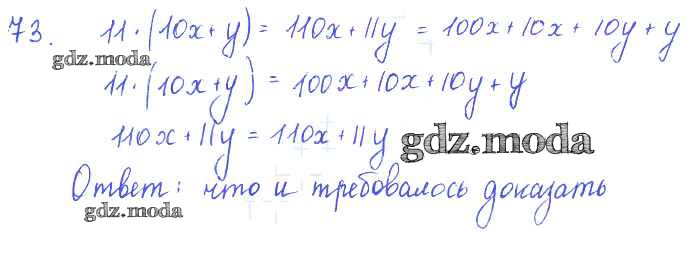 73. 11·(10x+y) = 110x+11y = 100x+10x+10y+y
gdz.moda
11·(10x+y) = 100x+10x+10y+y
110x+11y = 110x+11y gdz.moda
Ответ: что и требовалось доказать
gdz.moda